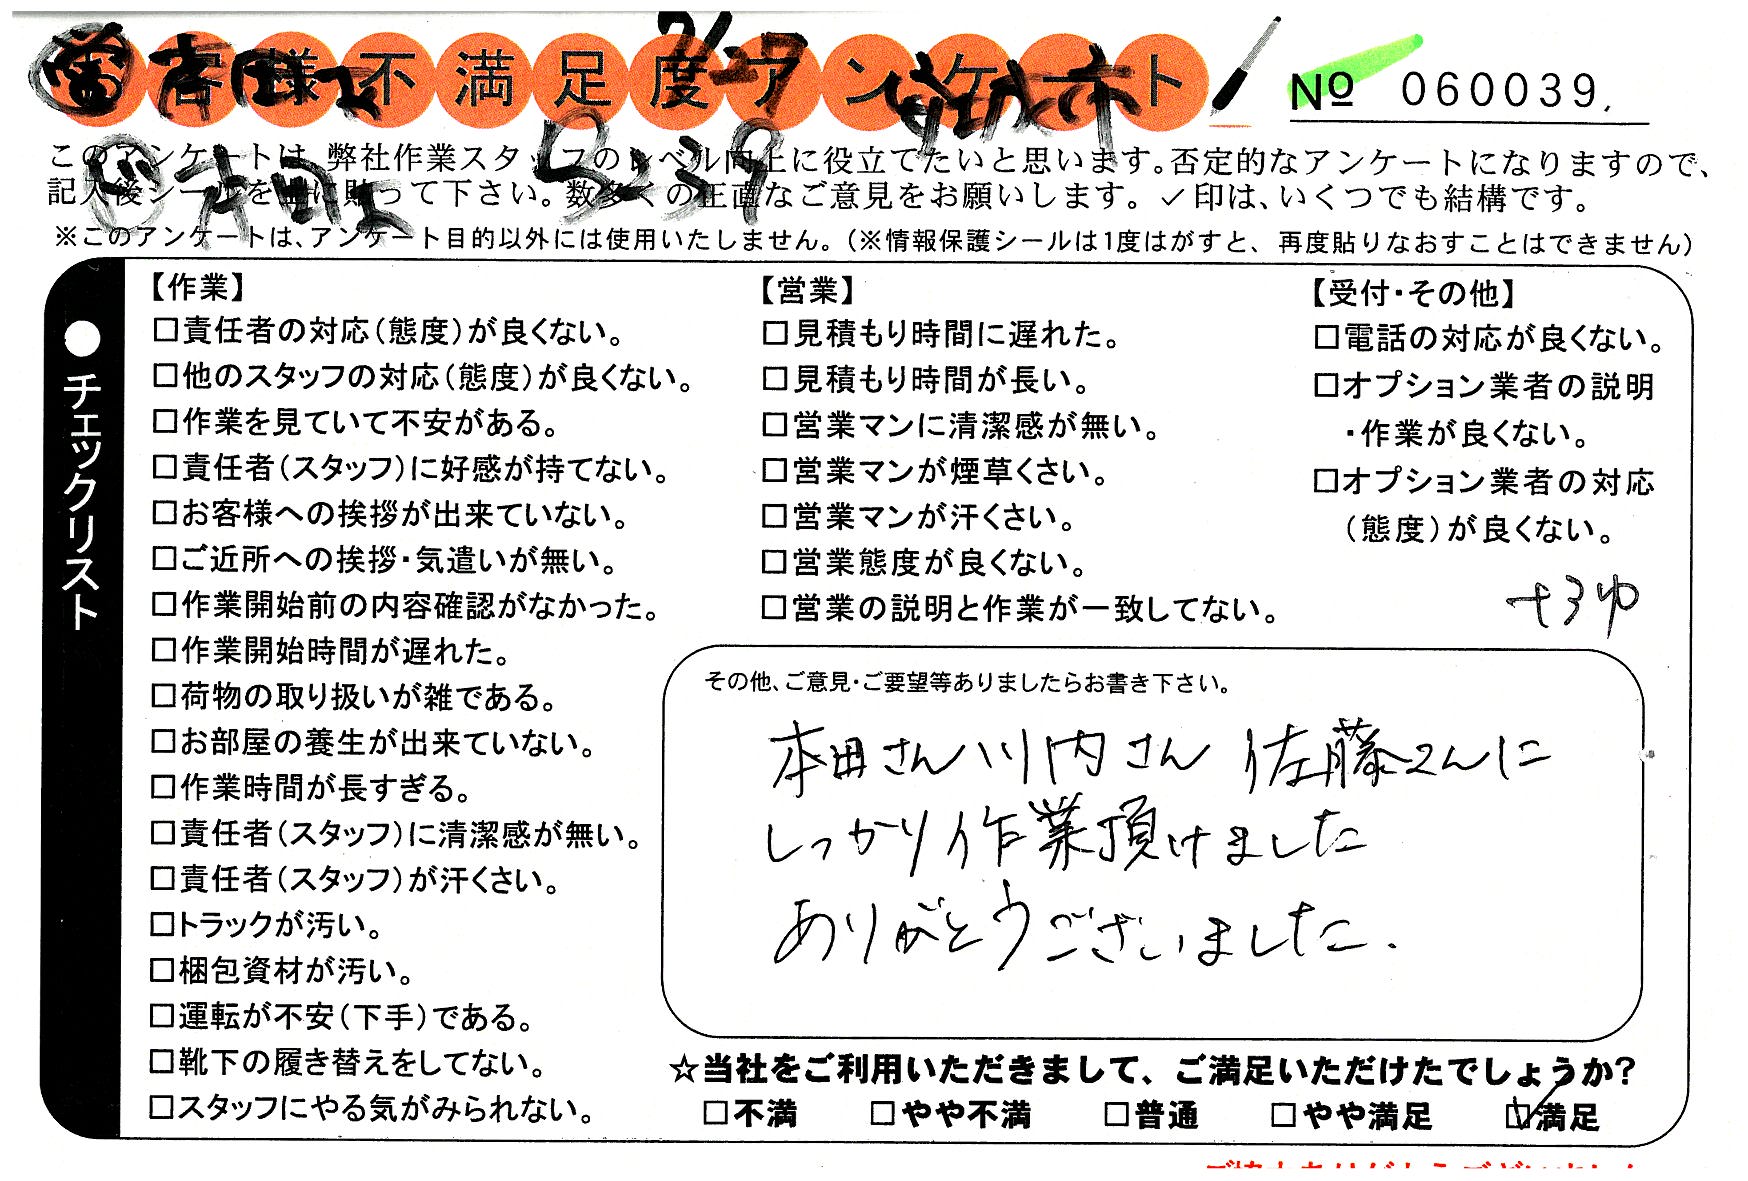 お客様不満足度アンケート
№ 060039
このアンケートは、弊社作業スタッフのレベル向上に役立てたいと思います。否定的なアンケートになりますので、
記入後シールを上に貼って下さい。数多くの正直なご意見をお願いします。✓印は、いくつでも結構です。
※このアンケートは、アンケート目的以外には使用いたしません。(※情報保護シールは1度はがすと、再度貼りなおすことはできません)
●チェックリスト
【作業】
□責任者の対応(態度)が良くない。
□他のスタッフの対応(態度)が良くない。
□作業を見ていて不安がある。
□責任者(スタッフ)に好感が持てない。
□お客様への挨拶が出来ていない。
□ご近所への挨拶・気遣いが無い。
□作業開始前の内容確認がなかった。
□作業開始時間が遅れた。
□荷物の取り扱いが雑である。
□お部屋の養生が出来ていない。
□作業時間が長すぎる。
□責任者(スタッフ)に清潔感が無い。
□責任者(スタッフ)が汗くさい。
□トラックが汚い。
□梱包資材が汚い。
□運転が不安(下手)である。
□靴下の履き替えをしてない。
□スタッフにやる気がみられない。
【営業】
□見積もり時間に遅れた。
□見積もり時間が長い。
□営業マンに清潔感が無い。
□営業マンが煙草くさい。
□営業マンが汗くさい。
□営業態度が良くない。
□営業の説明と作業が一致してない。
【受付・その他】
□電話の対応が良くない。
□オプション業者の説明
・作業が良くない。
□オプション業者の対応
(態度)が良くない。
その他、ご意見・ご要望等ありましたらお書き下さい。
本田さん川内さん 佐藤さんに
しっかり作業頂けました
ありがとうございました.
☆当社をご利用いただきまして、ご満足いただけたでしょうか?
□不満 □やや不満 □普通 □やや満足 ☑満足